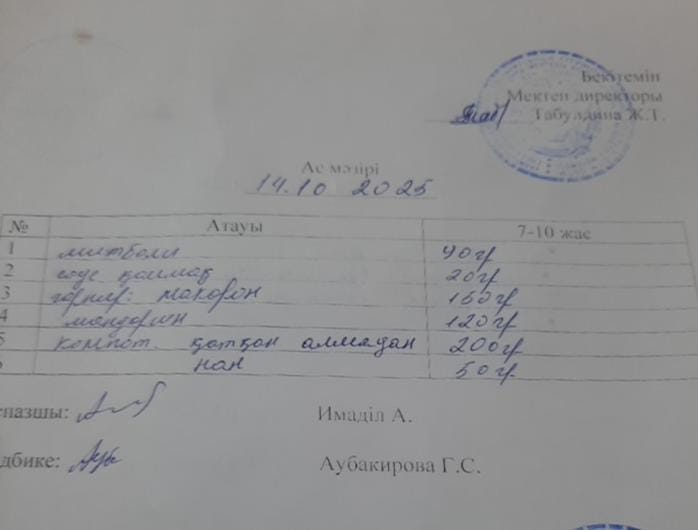 Бекітемін
Мектеп директоры
Табулдина Ж.Т.
Ас мәзірі
14.10 2025
№ Атауы 7-10 жас
1 митболи 90гр
2 қаймақ 20гр
3 гарнир: макорон 150гр
4 мандорин 120гр
5 компот. қатқан алмадан 200гр
нан 50гр
еназшы: Имаділ А.
дбике: Аубакирова Г.С.